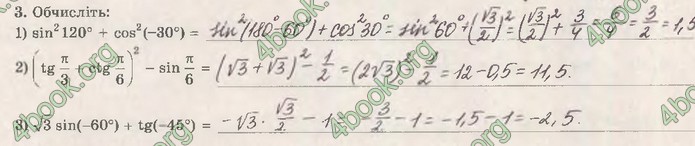 3. Обчисліть:
1) sin²120° + cos²(−30°) = sin²(180°−60°) + cos²30° = sin²60° + (√3/2)² = (√3/2)² + 3/4 = 6/4 = 3/2 = 1,5
2) (tg π/3 + ctg π/6)² − sin π/6 = (√3 + √3)² − 1/2 = (2√3)² − 1/2 = 12 − 0,5 = 11,5.
3) √3 sin(−60°) + tg(−45°) = −√3 · √3/2 − 1 = −3/2 − 1 = −1,5 − 1 = −2,5.
4book.org